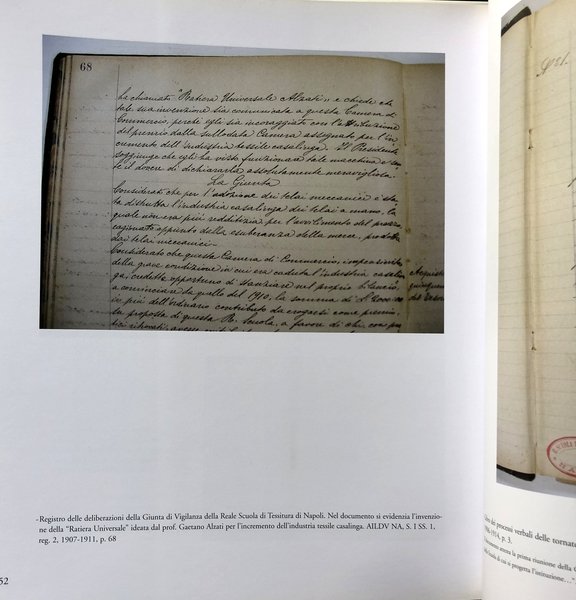 68
ha chiamata "Ratiera Universale Alzati" e chiede che
tale sua invenzione sia comunicata a questa Camera di
Commercio, perché egli sia incoraggiato con l'attribuzione
del premio dalla sullodata Camera assegnato per l'in
cremento dell'industria tessile casalinga. Il Presidente
soggiunge che egli ha visto funzionare tale macchina e sen
te il dovere di dichiararla assolutamente meravigliosa.
La Giunta
Considerato che per l'adozione dei telai meccanici è sta
ta distrutta l'industria casalinga dei telai a mano, la
quale non era più redditizia per l'avvilimento del prezzo
cagionato appunto dalla esuberanza della merce, prodotta
dai telai meccanici-
Considerato che questa Camera di Commercio, impensierita
della grave condizione in cui era caduta l'industria casalin
ga, credette opportuno di stanziare nel proprio bilancio,
a cominciare da quello del 1910, la somma di
in più dell'ordinario contributo da erogarsi come premio,
su proposta di questa R. Scuola, a favore di chi, con
-Registro delle deliberazioni della Giunta di Vigilanza della Reale Scuola di Tessitura di Napoli. Nel documento si evidenzia l'invenzio-
ne della "Ratiera Universale" ideata dal prof. Gaetano Alzati per l'incremento dell'industria tessile casalinga. AILDV NA, S. I SS. 1,
reg. 2, 1907-1911, p. 68
52
dei processi verbali delle tornate
-1914, p. 3.
la prima riunione della
di cui si progetta l'istituzione..."